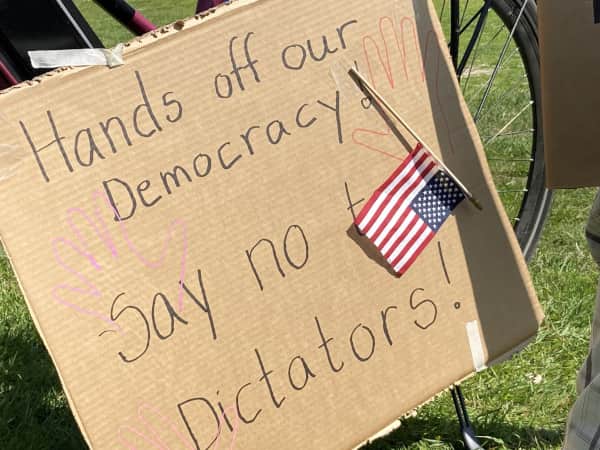 Hands off our
Democracy!
Say no t
Dictators!